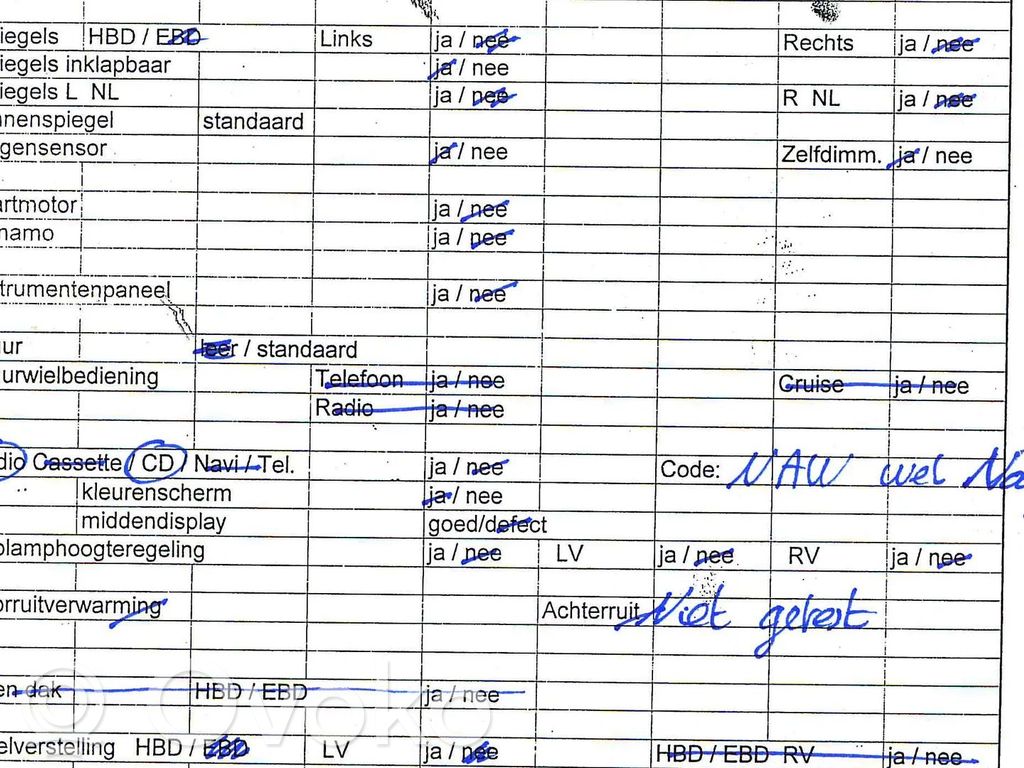 iegels HBD / EBD Links ja / nee Rechts ja / nee
iegels inklapbaar ja / nee
iegels L NL ja / nee R NL ja / nee
nenspiegel standaard
gensensor ja / nee Zelfdimm. ja / nee
artmotor ja / nee
namo ja / nee
trumentenpaneel ja / nee
ur leer / standaard
urwielbediening Telefoon ja / nee Cruise ja / nee
Radio ja / nee
dio Cassette / CD / Navi / Tel. ja / nee Code: NAW wel Na
kleurenscherm ja / nee
middendisplay goed/defect
plamphoogteregeling ja / nee LV ja / nee RV ja / nee
orruitverwarming Achterruit Niet getest
en dak HBD / EBD ja / nee
© Ovoko
elverstelling HBD / EBD LV ja / nee HBD / EBD RV ja / nee